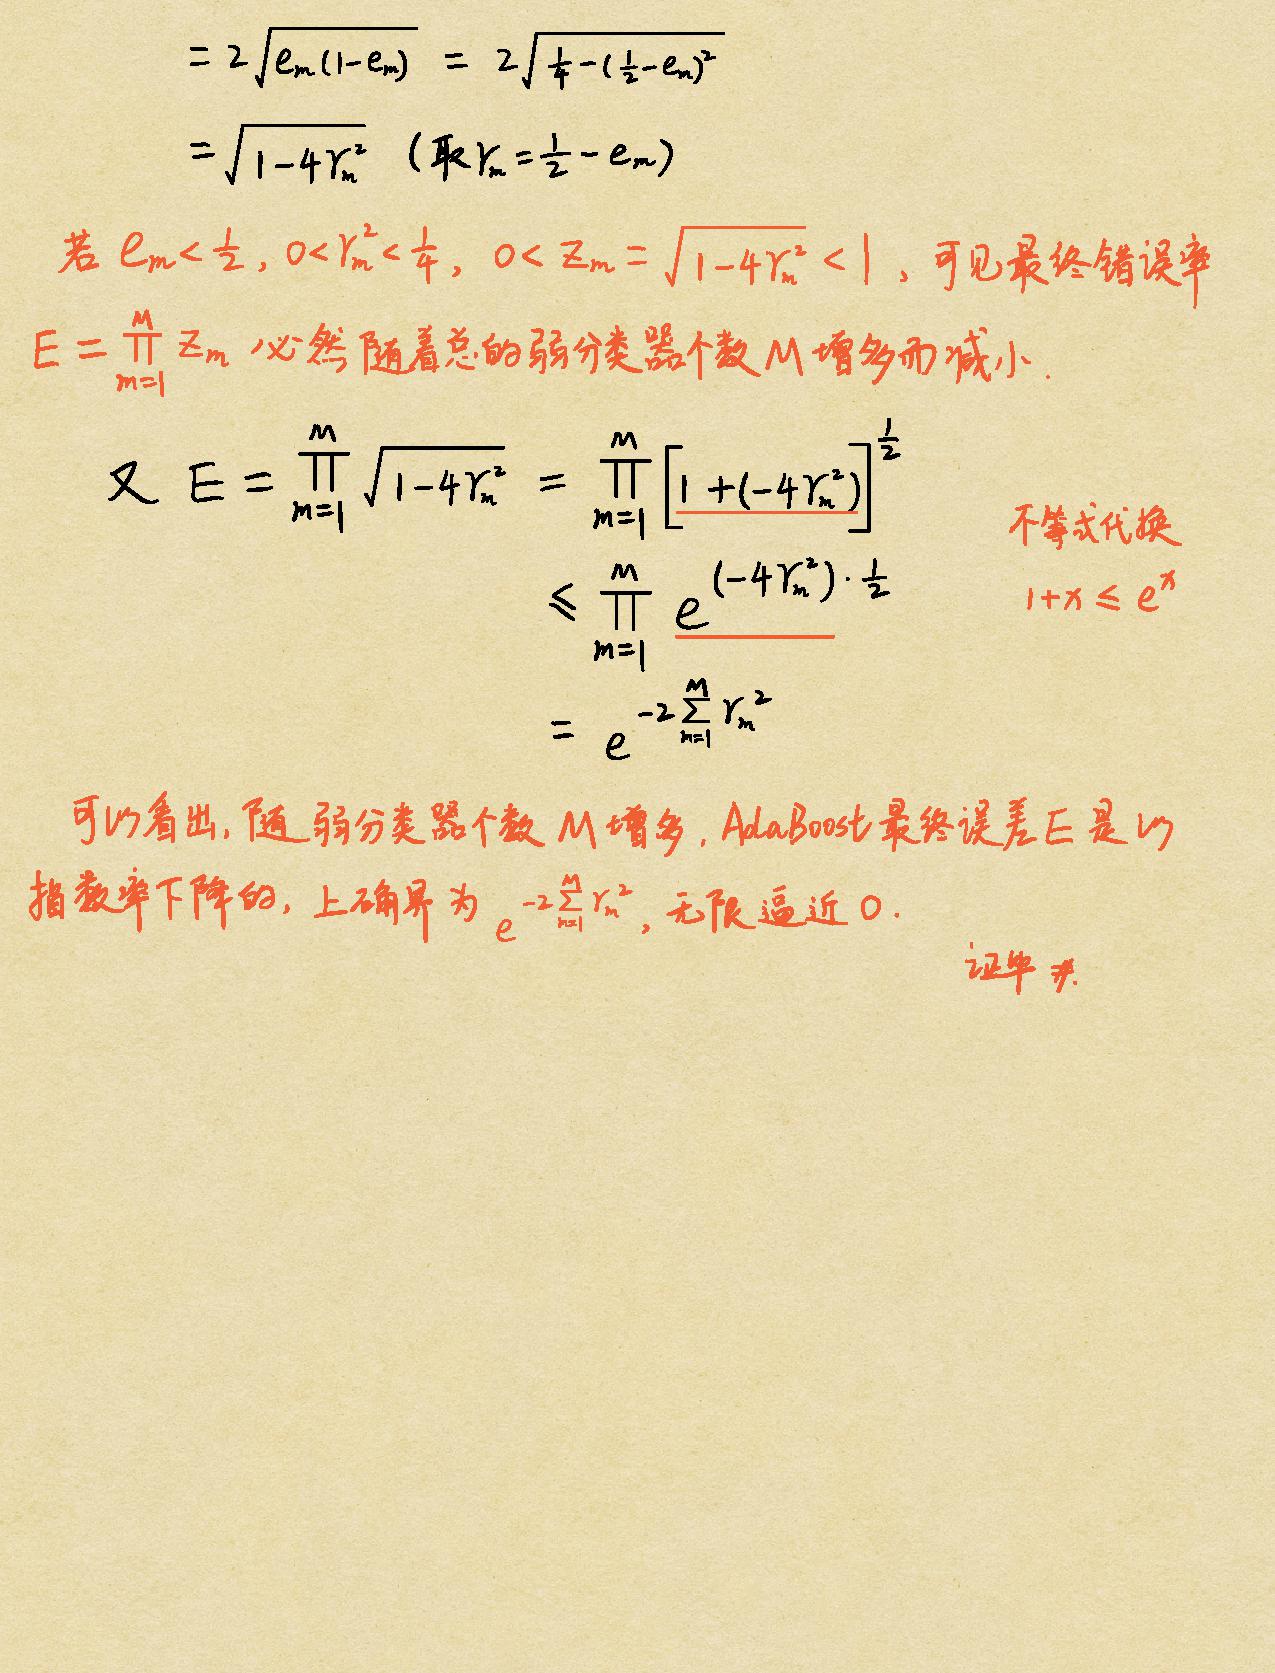 = 2√(eₘ(1-eₘ)) = 2√(1/4-(1/2-eₘ)²)
= √(1-4γₘ²) (取γₘ=1/2-eₘ)
若 eₘ<1/2, 0<γₘ²<1/4, 0<Zₘ=√(1-4γₘ²)<1、可见最终错误率
E=∏_{m=1}^{M} Zₘ 必然随着总的弱分类器个数M增多而减小.
又 E=∏_{m=1}^{M} √(1-4γₘ²) = ∏_{m=1}^{M} [1+(-4γₘ²)]^{1/2}
≤ ∏_{m=1}^{M} e^{(-4γₘ²)·1/2}
不等式代换
1+x≤e^x
= e^{-2∑_{m=1}^{M} γₘ²}
可以看出, 随弱分类器个数M增多, AdaBoost最终误差E是以
指数率下降的, 上确界为 e^{-2∑_{m=1}^{M} γₘ²}, 无限逼近0.
证毕 #.